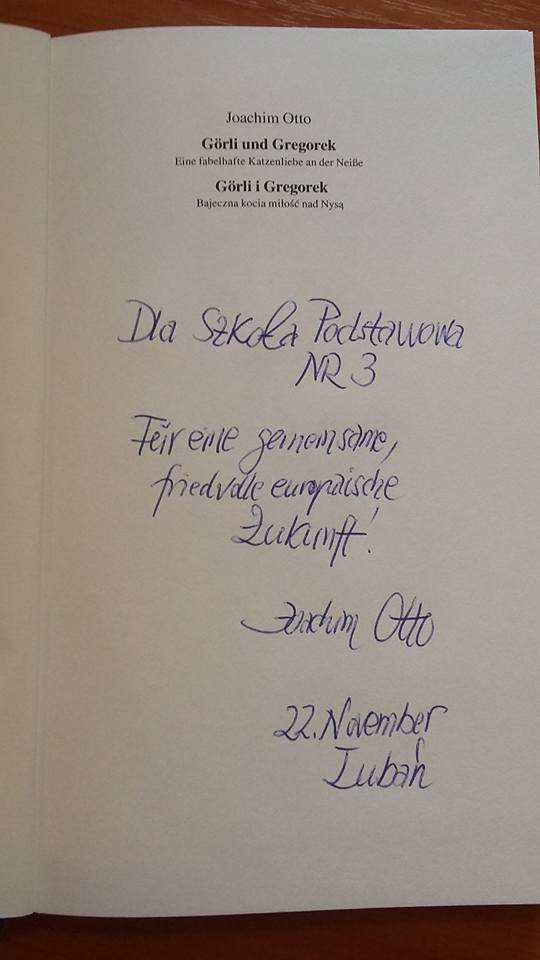 Joachim Otto
Görli und Gregorek
Eine fabelhafte Katzenliebe an der Neiße
Görli i Gregorek
Bajeczna kocia miłość nad Nysą
Dla Szkoła Podstawowa
NR 3
Für eine gemeinsame,
friedvolle europäische
Zukunft!
Joachim Otto
22. November
Lubań